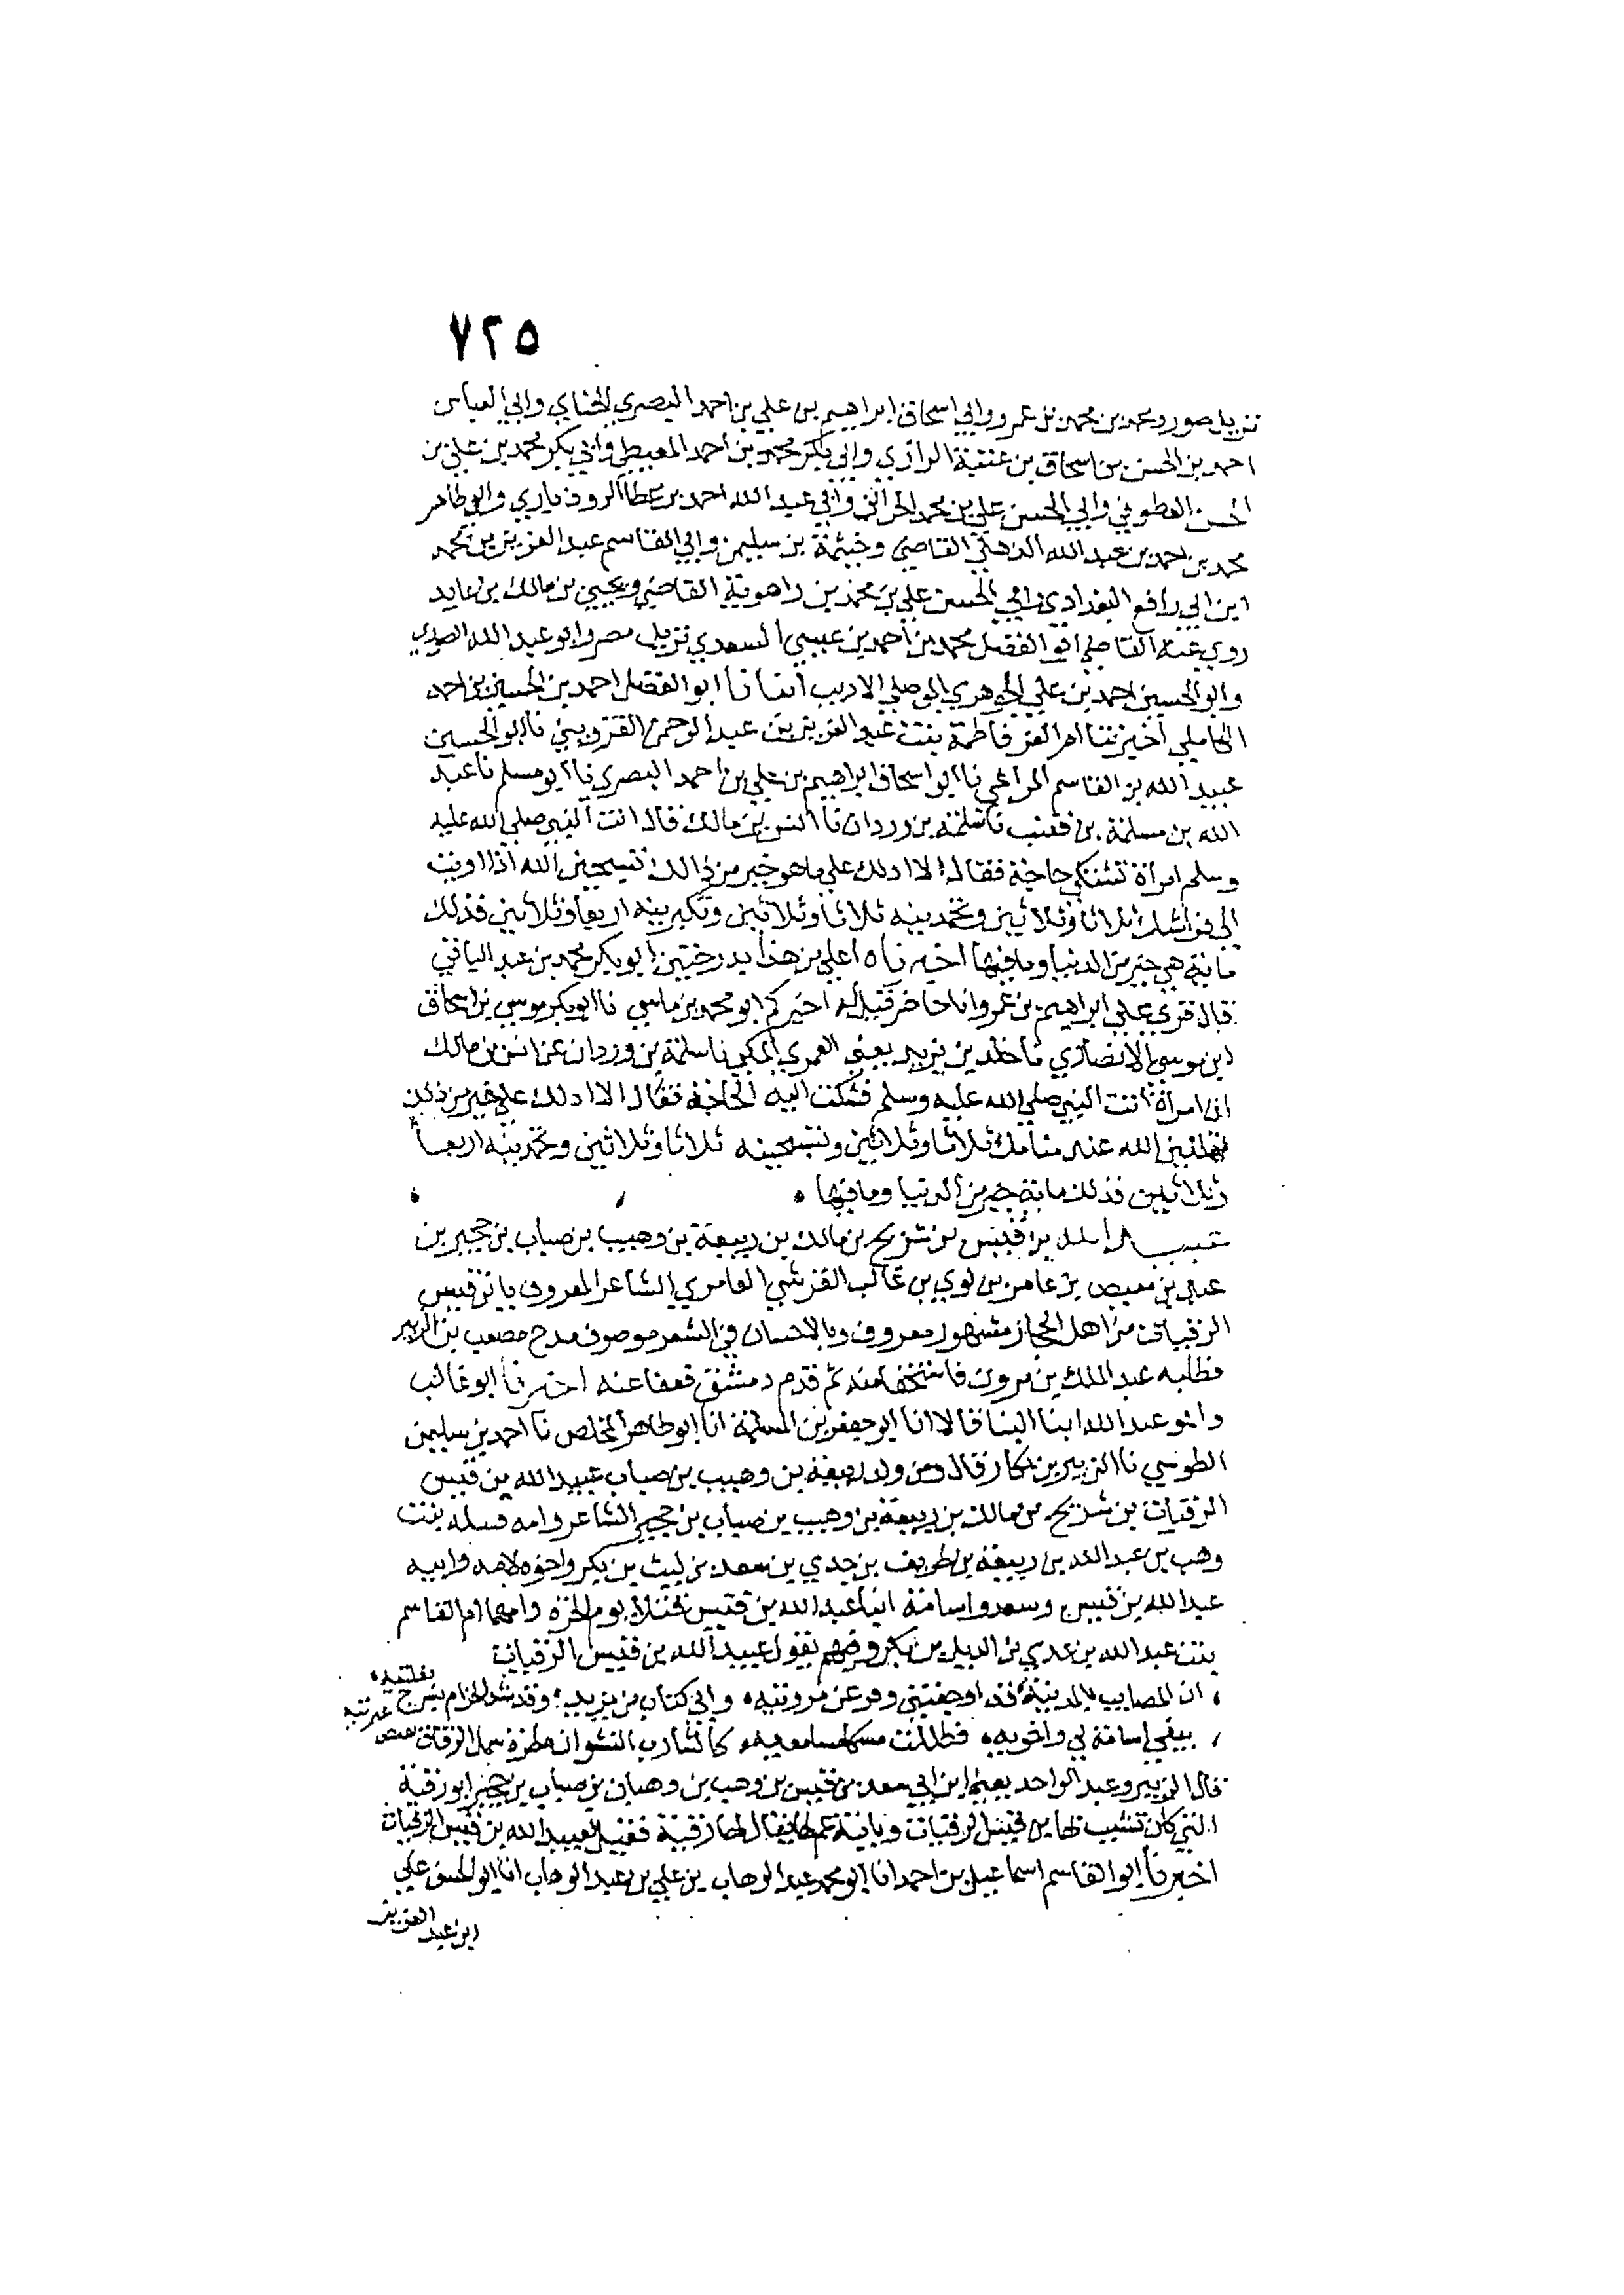 ٧٢٥
نزيل صور ومحمد بن محمد بن عمرو وابي اسحاق ابراهيم بن علي بن احمد البصري الحنائي وابي العباس
احمد بن الحسن بن اسحاق بن عتبة الرازي وابي بكر محمد بن احمد المعيطي وابي بكر محمد بن علي بن
الحسن العطوفي وابي الحسن علي بن محمد الحراني وابي عبد الله احمد بن عطا الروذباري وابي طاهر
محمد بن احمد بن عبد الله الذهلي القاضي وخيثمة بن سليمن وابي القاسم عبد العزيز بن محمد
ابن ابي رافع البغدادي وابي الحسن علي بن محمد بن راهوية القاضي ويحيى بن مالك بن عايد
روي عنه القاضي ابو الفضل محمد بن احمد بن عيسي السعدي نزيل مصر وابو عبد الله الصوري
وابو الحسين احمد بن علي الجوهري الموصلي الاديب انبانا ابو الفضل احمد بن الحسين بن احمد
الكاملي اخبرتنا ام العز فاطمة بنت عبد العزيز بن عبد الرحمن القزويني نا ابو الحسين
عبيد الله بن القاسم المراغي نا ابو اسحاق ابراهيم بن علي بن احمد البصري نا ابو مسلم نا عبد
الله بن مسلمة بن قعنب نا سلمة بن وردان نا انس بن مالك قال اتت النبي صلي الله عليه
وسلم امراة تشتكي حاجة فقال الا ادلك علي ما هو خير من ذالك تسبحين الله اذا اويت
الى فراشك ثلاثا وثلاثين وتحمدينه ثلاثا وثلاثين وتكبرينه اربعا وثلاثين فذلك
ماية هي خير من الدنيا وما فيها اخبرناه اعلي من هذا بدرجتين ابو بكر محمد بن عبد الباقي
قال قري علي ابراهيم بن عمر وانا حاضر قيل له اخبركم ابو محمد بن ماسي نا ابو بكر موسي بن اسحاق
ابن موسي الانصاري نا خلد بن يزيد يعني العمري المكي نا سلمة بن وردان عن انس بن مالك
ان امراة اتت النبي صلي الله عليه وسلم فشكت اليه الحاجة فقال الا ادلك علي خير من ذلك
تهللين الله عند منامك ثلاثا وثلاثين وتسبحينه ثلاثا وثلاثين وتحمدينه اربعا
وثلاثين فذلك ماية خير من الدنيا وما فيها
عبيد الله بن قيس بن شريح بن مالك بن ربيعة بن وهيب بن ضباب بن حجير بن
عبد بن معيص بن عامر بن لوي بن غالب القرشي العامري الشاعر المعروف بابن قيس
الرقيات من اهل الحجاز مشهور معروف وبالاحسان في الشعر موصوف مدح مصعب بن الزبير
فطلبه عبد الملك بن مرون فاستخفا منه ثم قدم دمشق فعفا عنه اخبرنا ابو غالب
وابو عبد الله ابنا البنا قالا انا ابو جعفر بن المسلمة انا ابو طاهر المخلص نا احمد بن سليمن
الطوسي نا الزبير بن بكار قال ومن ولد ربيعة بن وهيب بن ضباب عبيد الله بن قيس
الرقيات بن شريح بن مالك بن ربيعة بن وهيب بن ضباب بن حجير الشاعر وامه بنت
وهب بن عبد الله بن ربيعة بن طريف بن جدي بن سعد بن ليث بن بكر واخوه لامه وابيه
عبد الله بن قيس وسعد واسامة ابنا عبد الله بن قيس قتلا يوم الحرة وامهما ام القاسم
بنت عبد الله بن عدي بن الديل بن بكر وفيهم يقول عبيد الله بن قيس الرقيات
ان المصايب بالمدينة قد اوجعنني وقرعن مروتيه واتي كتاب من يزيد وقد شد الحزام بسرج بغلتيه
ينعي اسامة لي واخويه فظللت كالشارب النشوان
قال الزبير وعبد الواحد يعني ابن ابي سعد بن قيس بن وهب بن وهبان بن ضباب بن حجير ابو رقية
التي كان تشبب بها بن قيس الرقيات وبابنة عم لها يقال لها رقية فقيل لعبيد الله بن قيس الرقيات
اخبرنا ابو القاسم اسماعيل بن احمد انا ابو محمد عبد الوهاب بن علي بن عبد الوهاب انا ابو الحسن علي
ابن عبد العزيز